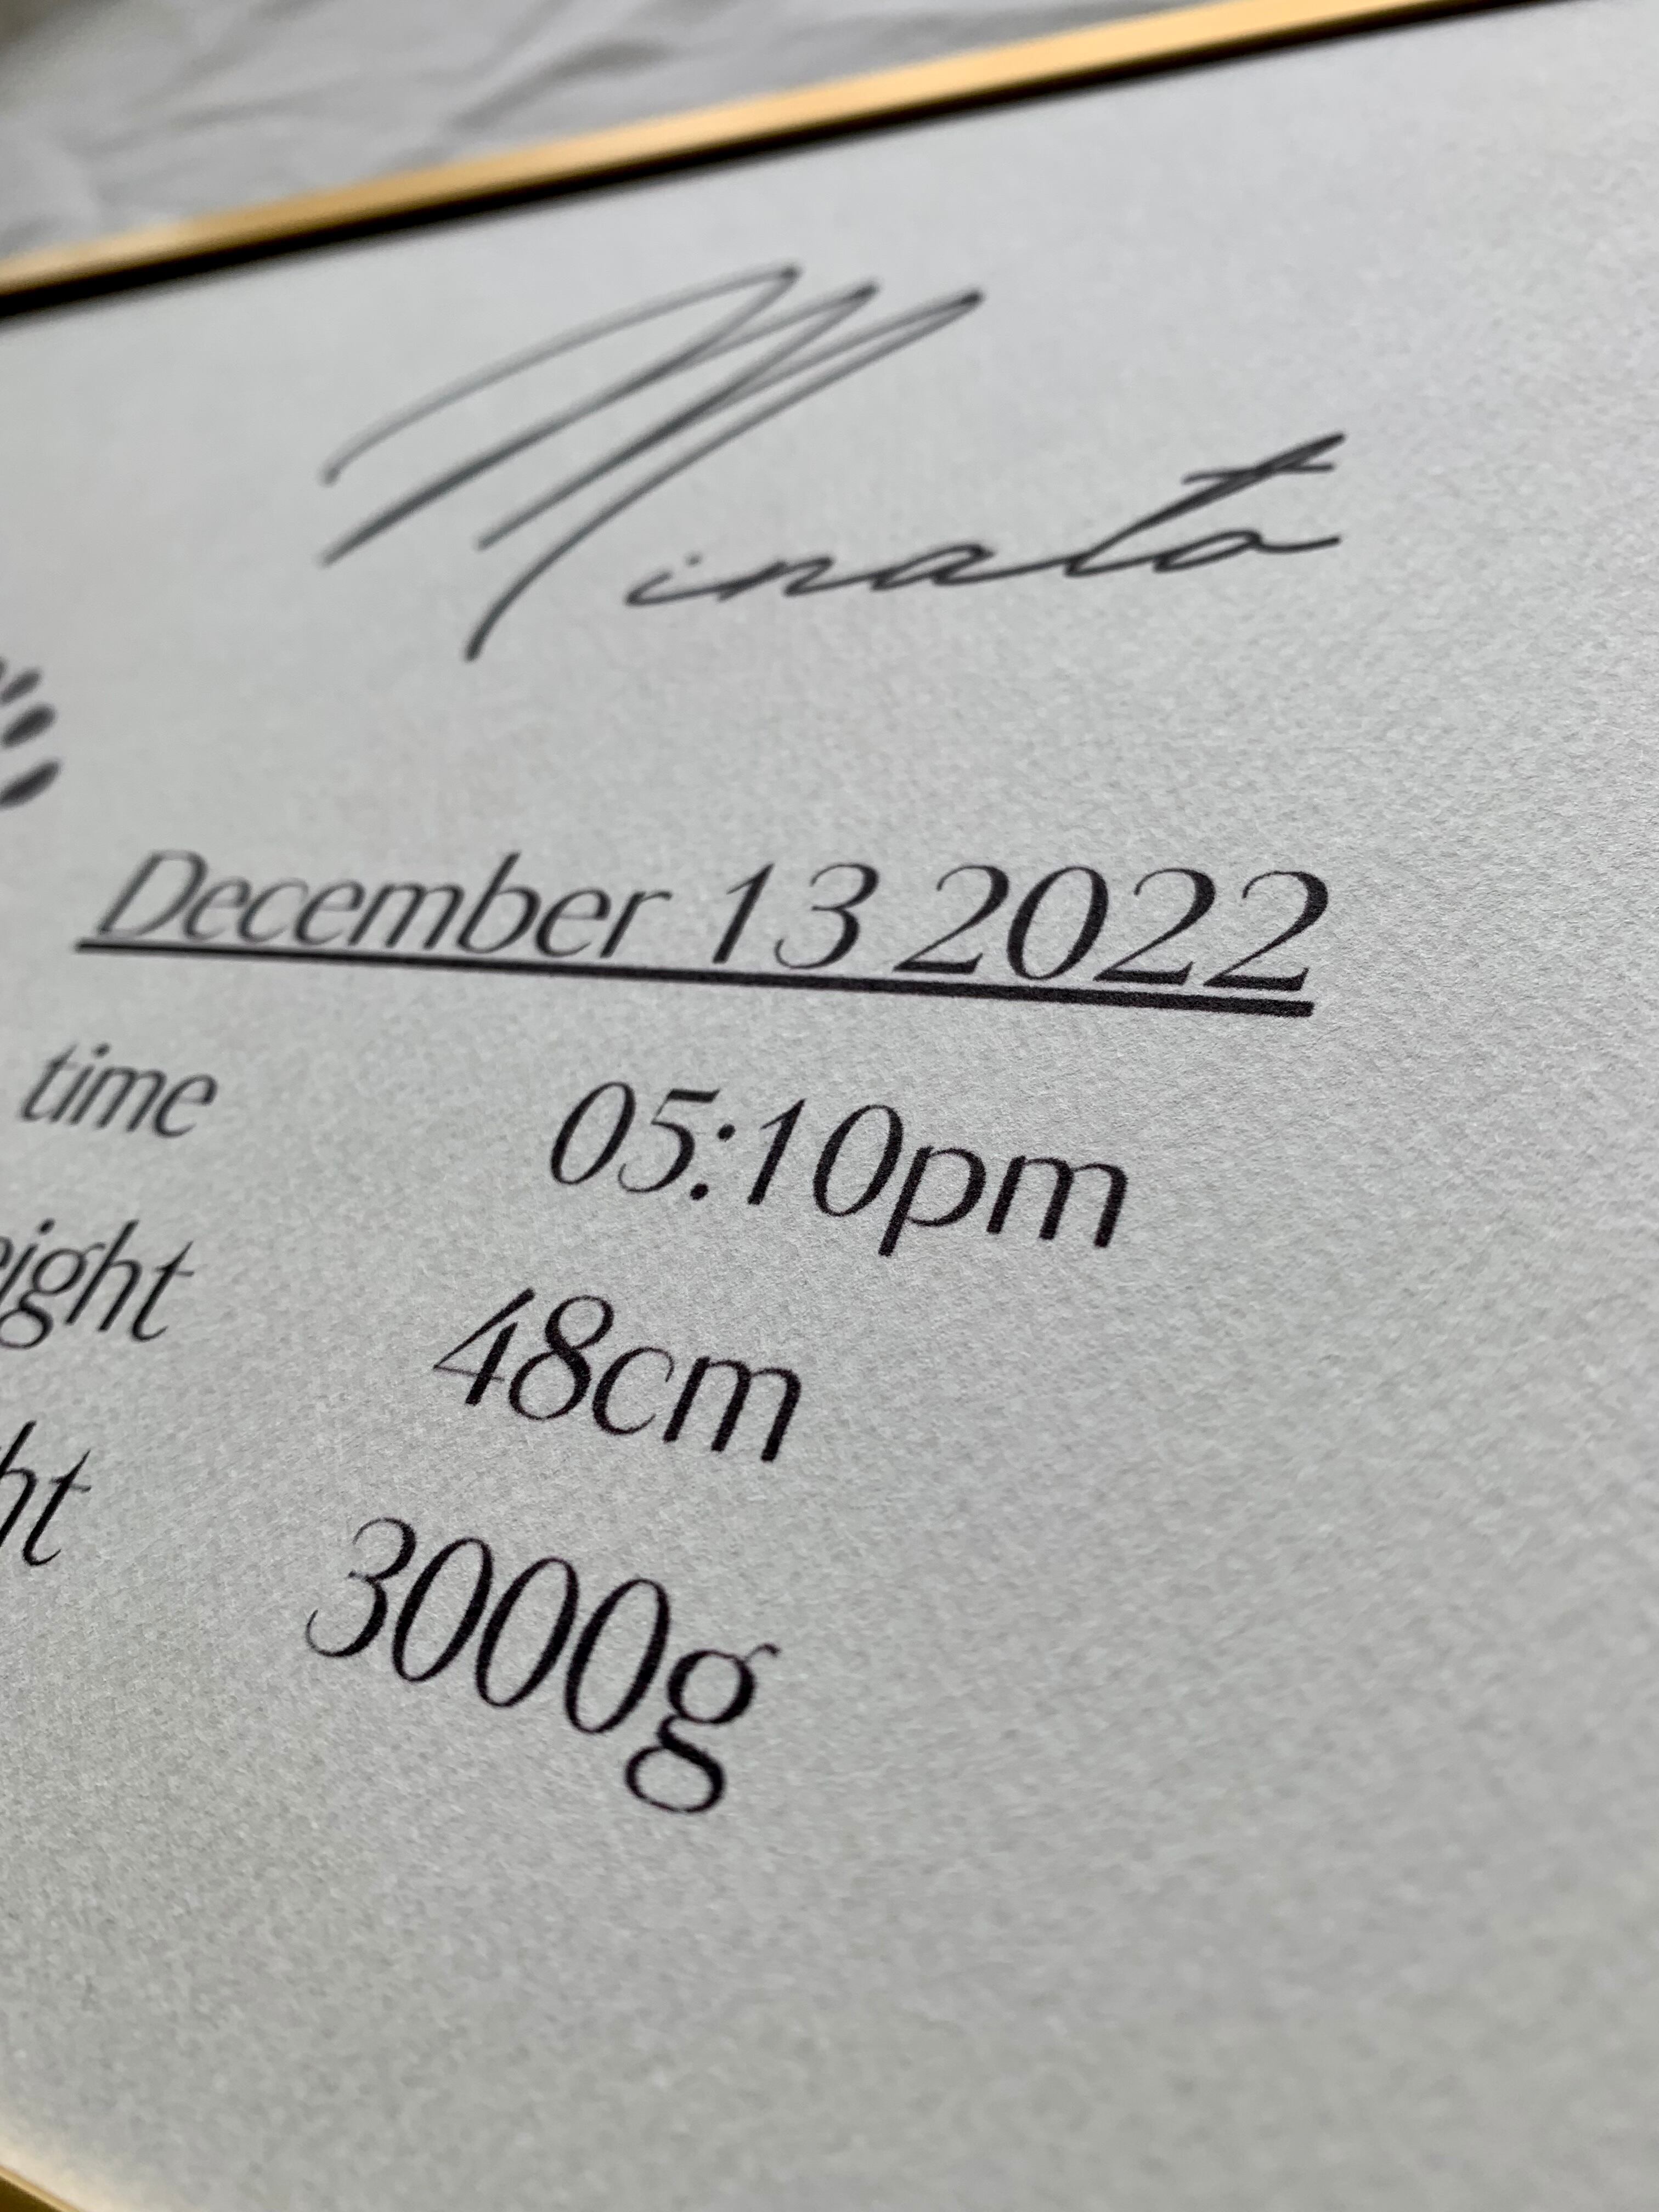 Minato
December 13 2022
time 05:10pm
eight 48cm
ht 3000g